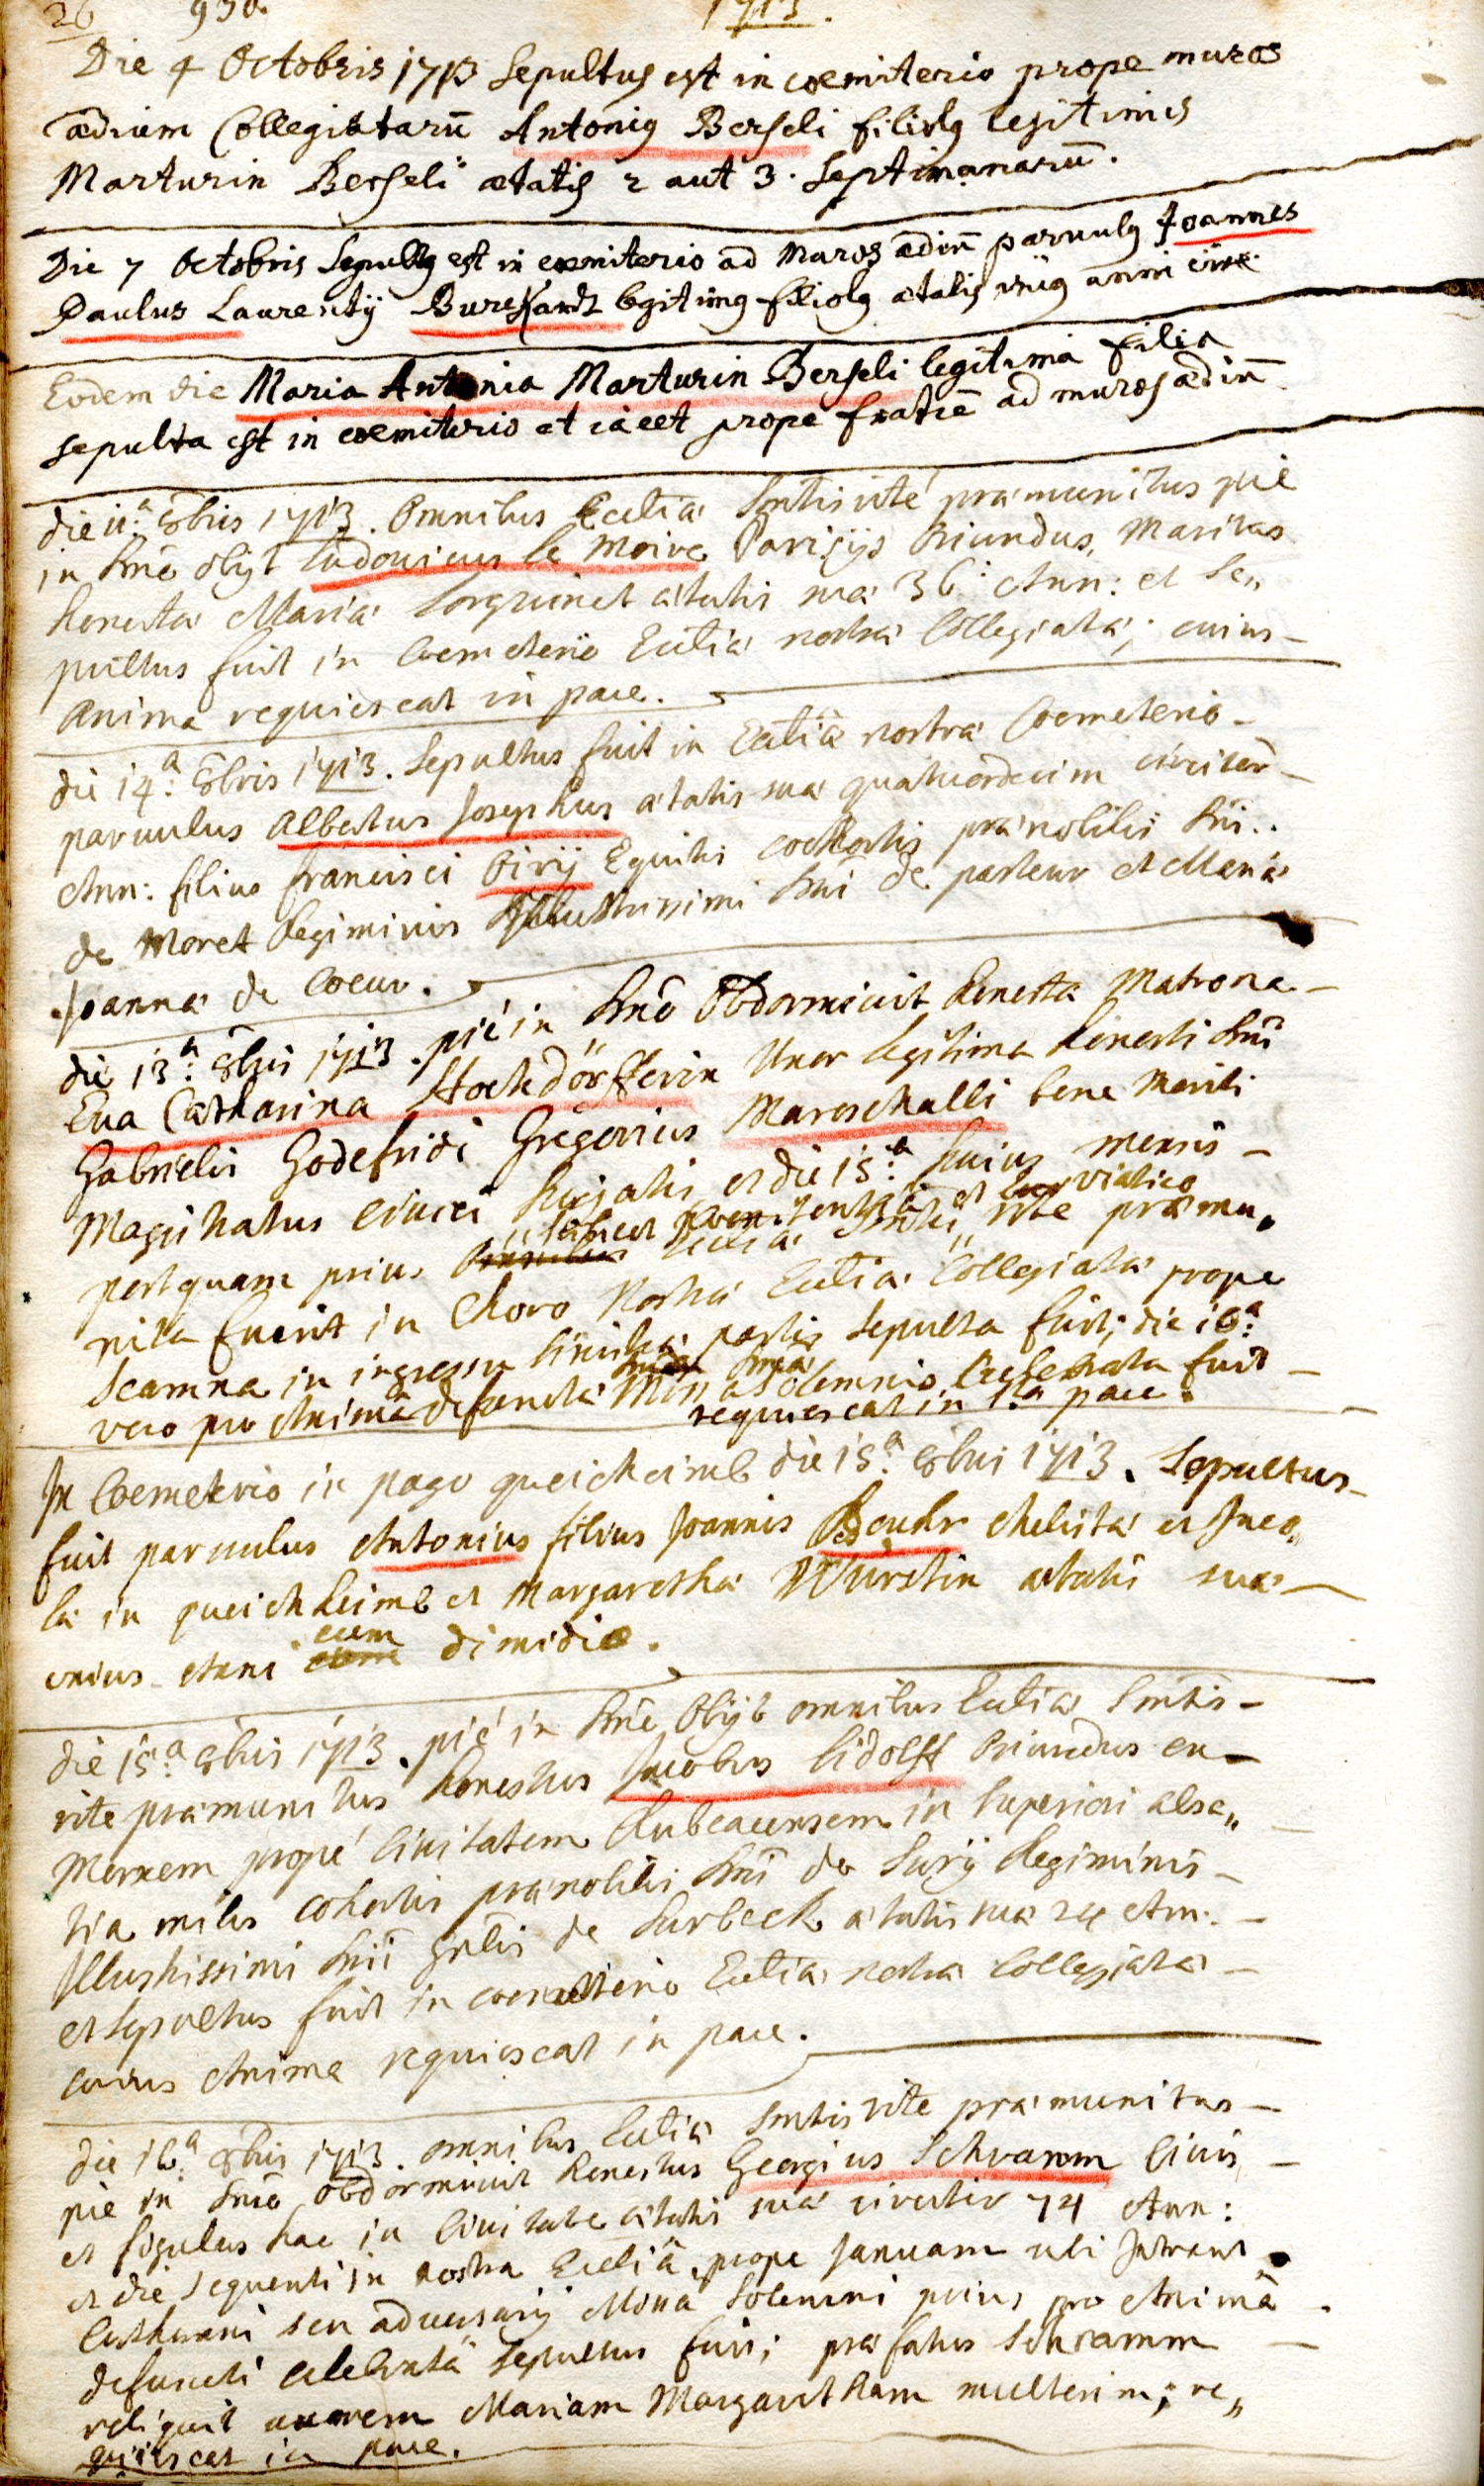 26 930. 1713.
Die 4 Octobris 1713 Sepultus est in cœmiterio prope muros
ædium Collegiatarū Antonius Berseli filiolus legitimus
Marturin Berseli ætatis 2 aut 3. Septimanarū.
Die 7 Octobris Sepultus est in cœmiterio ad Muros ædiū parvulus Joannes
Paulus Laurentij Burckardt legitimus filiolus ætatis unius anni
Eodem die Maria Antonia Marturin Berseli legitima filia
sepulta est in cœmiterio et iacet prope fratrē ad muros ædiū
die 11.ª 8bris 1713. Omnibus Ecclīæ Smtis rité præmunitus pié
in Dnō obijt Ludovicus le Moire Parisijs Oriundus, Maritus
honestæ Mariæ Sorquinet ætatis suæ 36. Ann: et Se„
pultus fuit in Coemeterio Ecclīæ nostræ Collegiatæ; cuius
Anima requiescat in pace.
die 14.ª 8bris 1713. Sepultus fuit in Ecclīæ nostræ Coemeterio
parvulus Albertus Josephus ætatis suæ quatuordecim circiter
Ann: filius francisci Oirij Equitis cohortis prænobilis Dni..
de Moret Regiminis Illustrissimi Dni de parteur et Mariæ
Joannæ de Coeur.
die 13.ª 8bris 1713. pié in Dnō Obdormivit honesta Matrona
Eva Catharina Hochdörfferin Uxor legitima honesti Dni
Gabrielis Godefridi Gregorius Mareschalli bene meriti
Magistratus civici huiatis, et die 15.ª huius mensis
postquam prius poenitentiæ et viatico Ecclīæ Smtis rite præmu„
nita fuerit in Choro Nostræ Ecclīæ Collegiatæ prope
Scamna in ingressu sinistræ partis sepulta fuit; die 16.ª
vero pro Animā defunctæ Missa Solemnis Celebrata fuit
requiescat in Sta pace.
In Coemeterio in pago queicheimb die 15.ª 8bris 1713. Sepultus
fuit parvulus Antonius filius Joannis Beuhr Melitæ et Inco„
læ in queichheimb et Margarethæ Würstin ætatis suæ
unius Anni cum dimidio.
die 15.ª 8bris 1713. pié in Dnō Obijt omnibus Ecclīæ Smtis
rite præmunitus honestus Jacobus Lidolff Oriundus ex
Merxem propé Civitatem Rubeacensem in Superiori alsa„
tia miles cohortis prænobilis Dni de Surij Regiminis
Illustrissimi Dni Gnlis de Surbeck ætatis suæ 24 Ann.
et sepultus fuit in coemeterio Ecclīæ nostræ Collegiatæ
cuius Anima requiescat in pace.
die 16.ª 8bris 1713. omnibus Ecclīæ Smtis rite præmunitus
pie in Dnō obdormivit honestus Georgius Schramm Civis
et figulus hac in Civitate ætatis suæ circiter 74 Ann:
et die sequenti in nostra Ecclīā, prope Januam ubi Intrant
Lutherani seu adversarij Missā Solemni prius pro Animā
defuncti celebratā sepultus fuit; præfatus Schramm
reliquit uxorem Mariam Margaretham mullerin; re„
quiescat in pace.